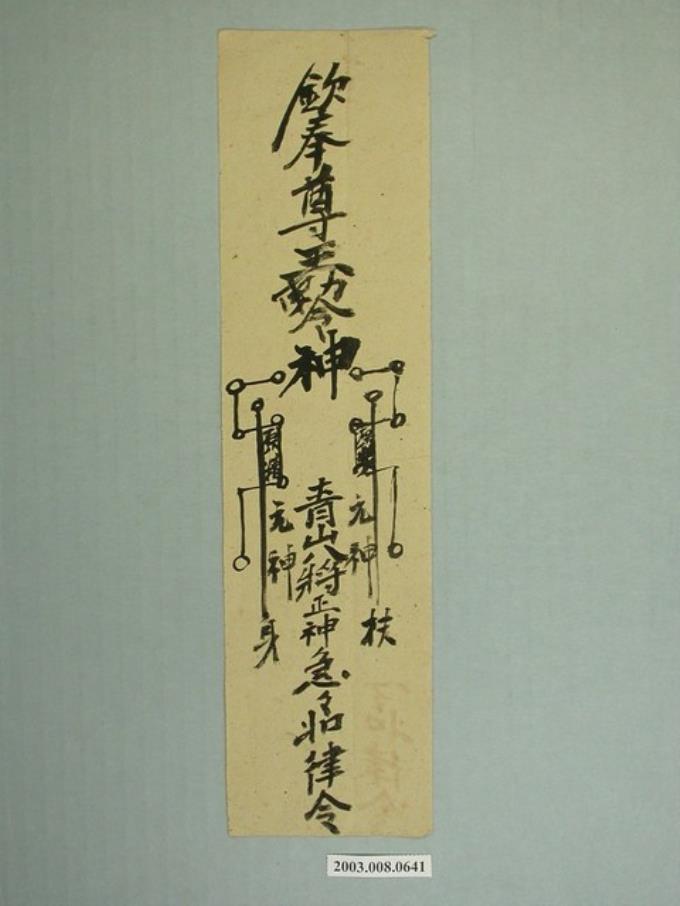 欽奉尊王勅令神
元神扶
元神身
青山八將正神急急如律令
2003.008.0641